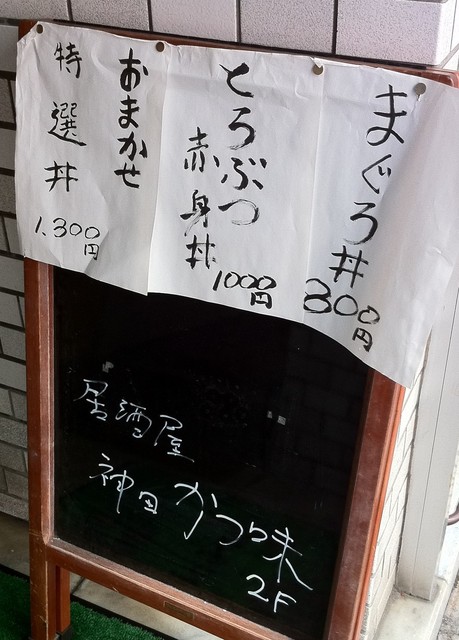 まぐろ丼
800円
とろぶつ
赤身丼
1000円
おまかせ
特選丼
1,300円
居酒屋
神田 かつ味
2F